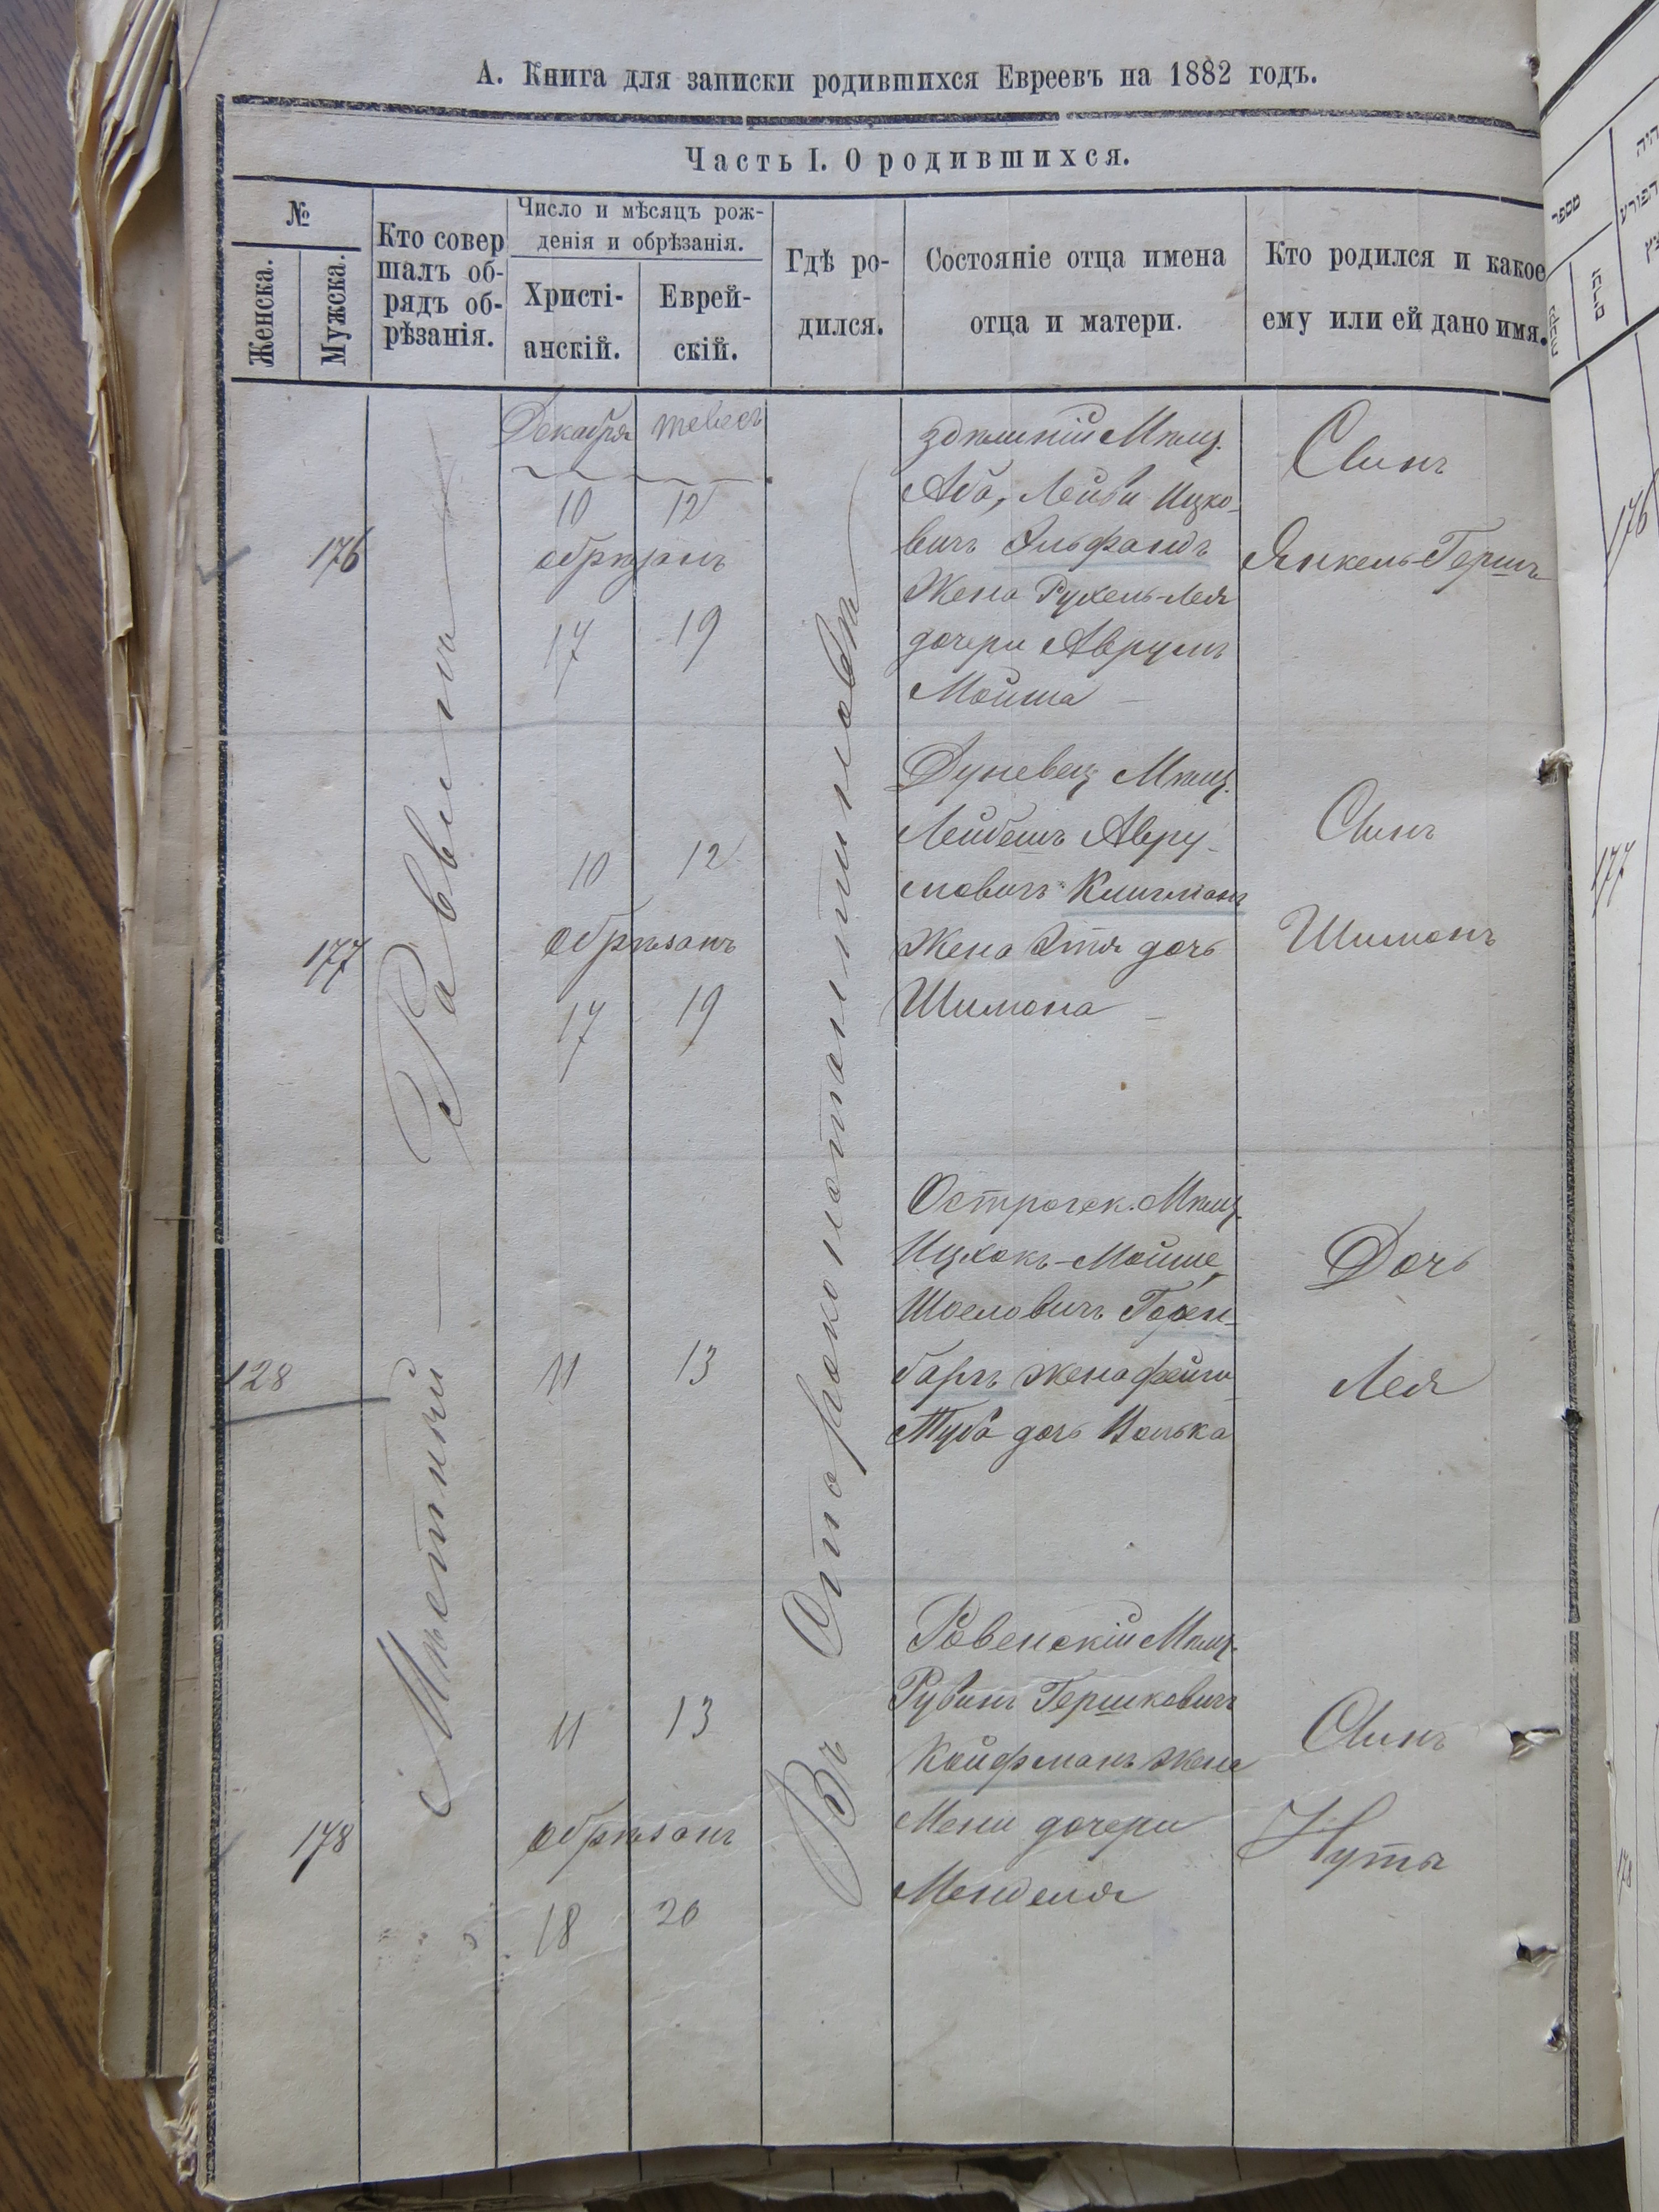 А. Книга для записки родившихся Евреевъ на 1882 годъ.
Часть I. О родившихся.
№
Женска.
Мужска.
Кто совер
шалъ об-
рядъ об-
рѣзанія.
Число и мѣсяцъ рож-
денія и обрѣзанія.
Христі-
анскій.
Еврей-
скій.
Гдѣ ро-
дился.
Состояніе отца имена
отца и матери.
Кто родился и какое
ему или ей дано имя.
Мѣстный Раввинъ
Въ Староконстантиновѣ
Декабря тевесъ
176
10 12
обрѣзанъ
17 19
здѣшній Мѣщ.
Аба, Лейби Ицко-
вичъ Эльфандъ
Жена Рухель-Лея
дочери Аврумъ
Мойша
Сынъ
Янкель-Гершъ
177
10 12
Обрѣзанъ
17 19
Дуневец Мѣщ.
Лейбешъ Авру-
мовичъ Клигманъ
Жена Этя дочь
Шимона
Сынъ
Шимонъ
128
11 13
Острогск. Мѣщ.
Ицхокъ-Мойше
Шоеловичъ
жена Фейга
Туба дочь Волька
Дочь
Лея
178
11 13
Обрѣзанъ
18 20
Ровенскій Мѣщ.
Рубинъ Гершковичъ
Койфманъ жена
Мени дочери
Менделя
Сынъ
Нута
מספר
176
177
178